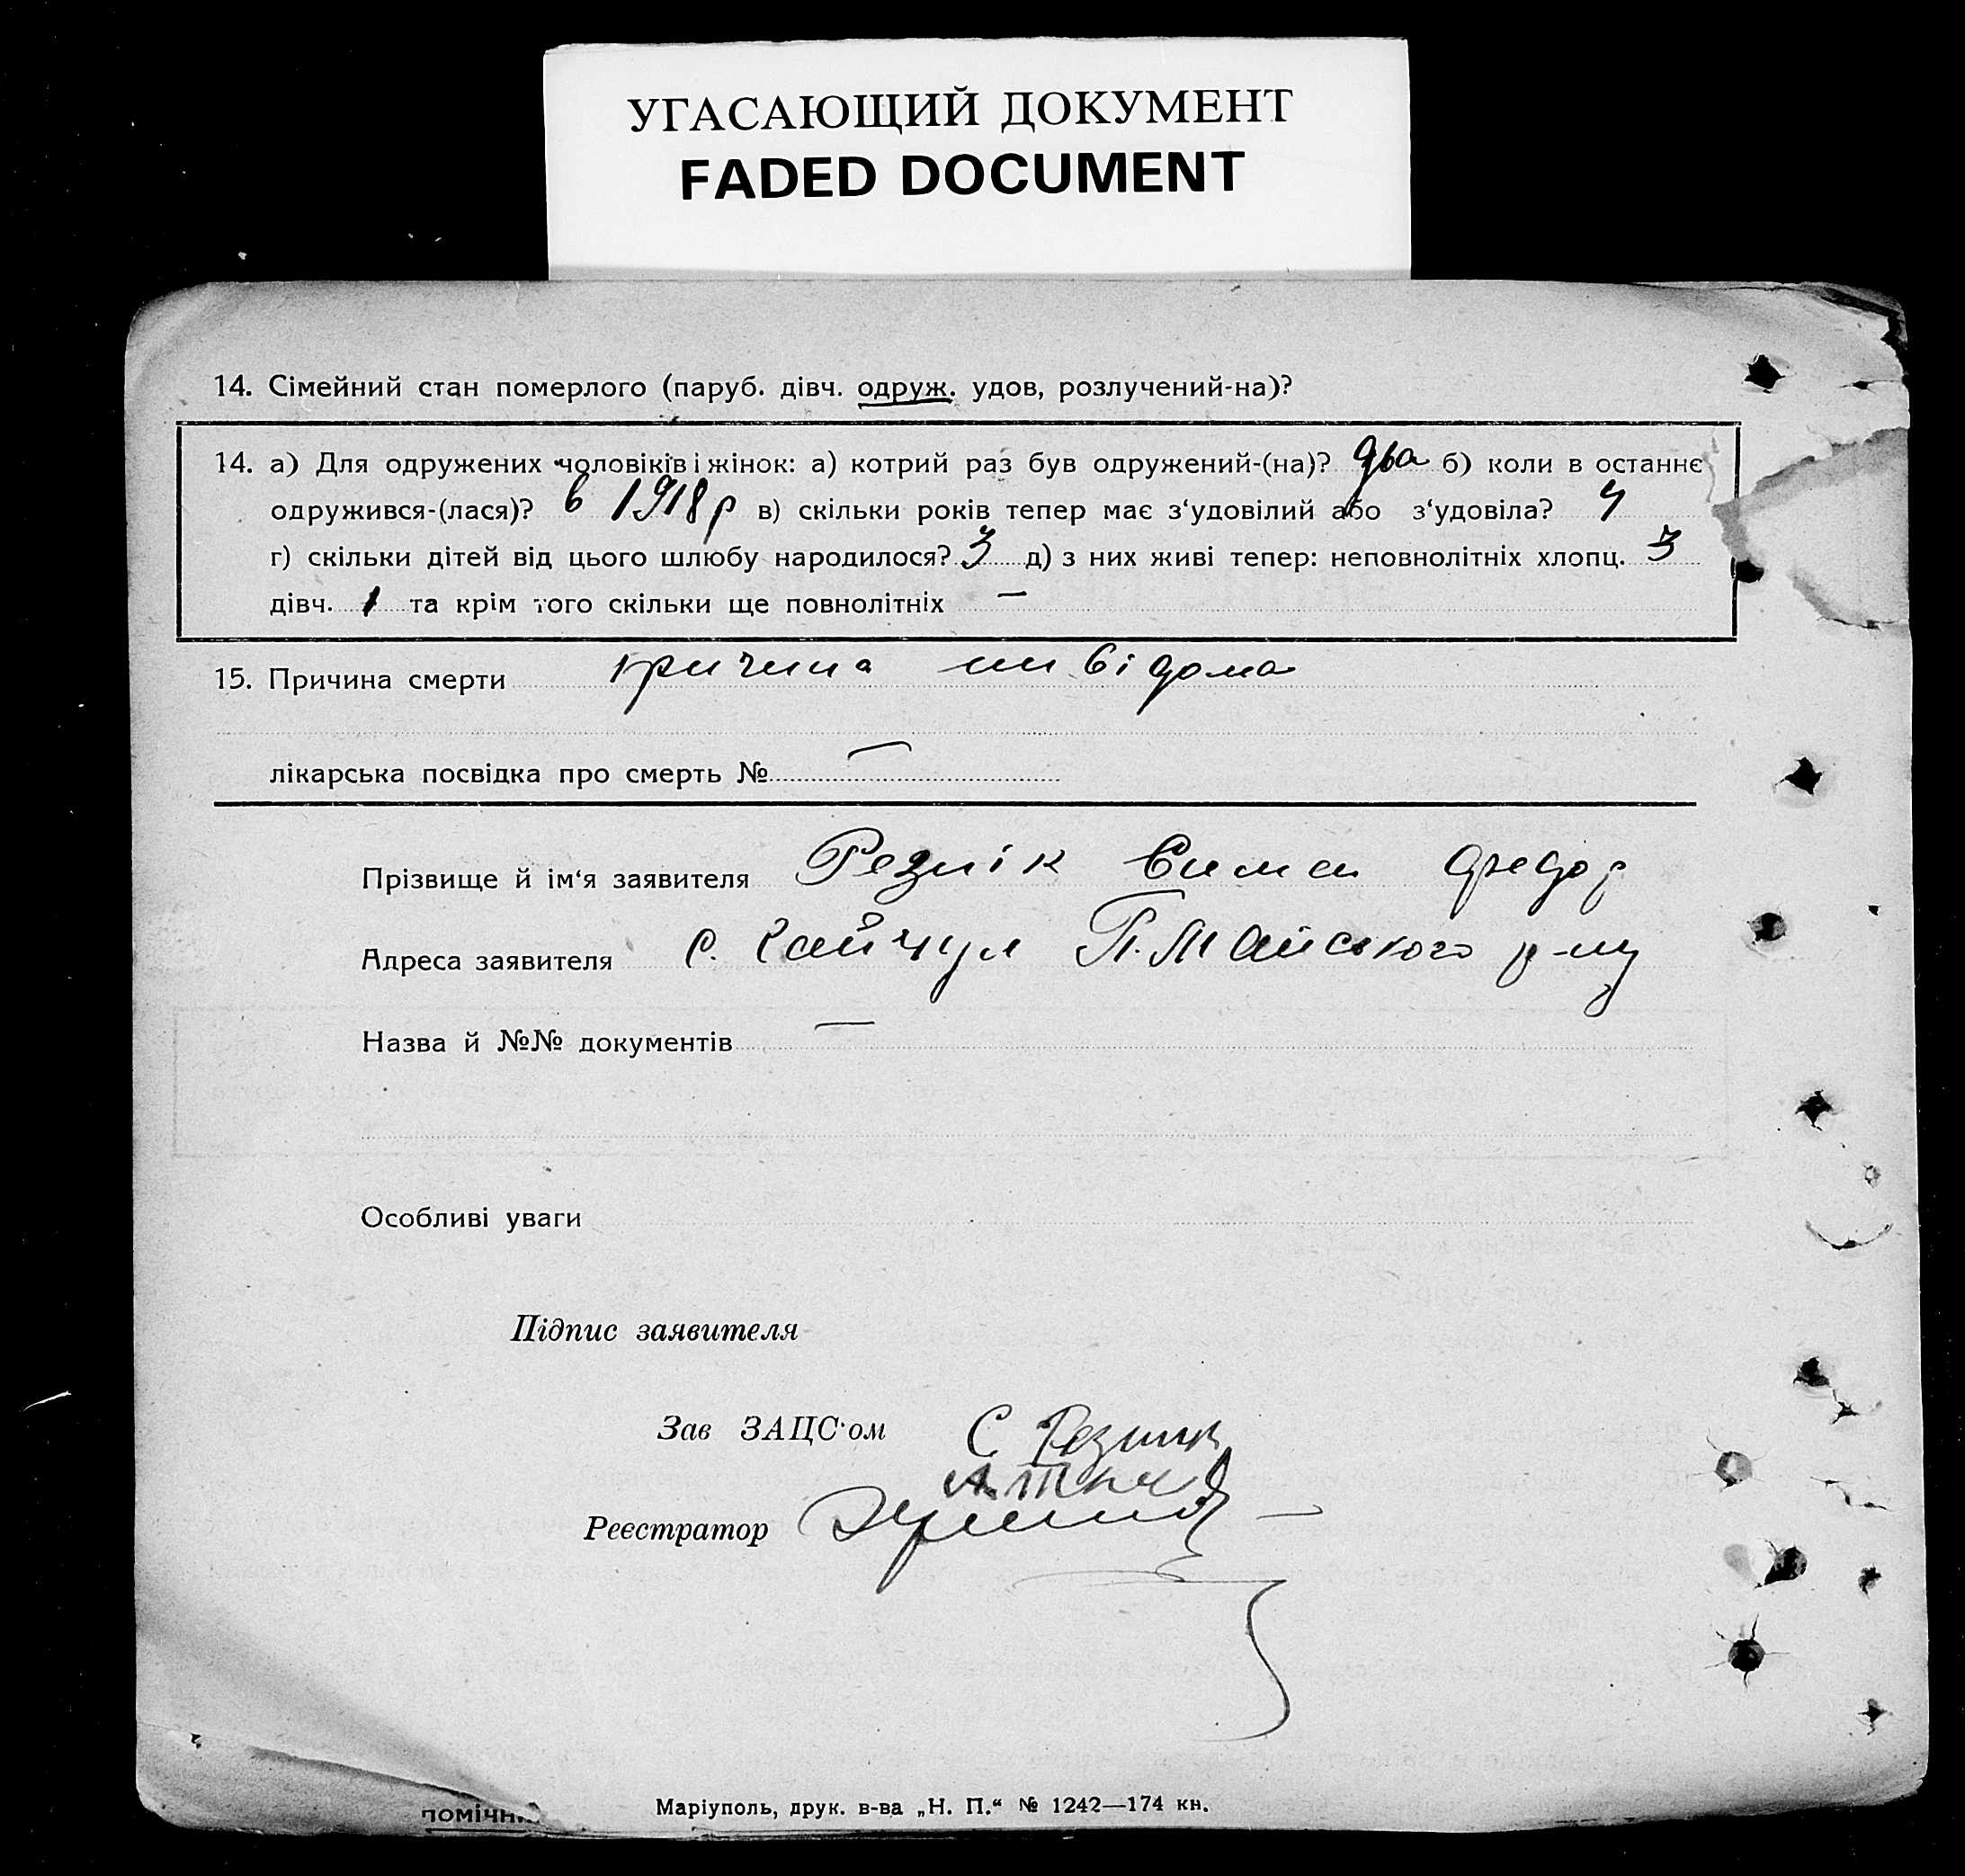 УГАСАЮЩИЙ ДОКУМЕНТ
FADED DOCUMENT
14. Сімейний стан померлого (паруб. дівч. одруж. удов, розлучений-на)?
14. а) Для одружених чоловіків і жінок: а) котрий раз був одружений-(на)? два б) коли в останнє
одружився-(лася)? в 1918 р в) скільки років тепер має з‘удовілий або з‘удовіла? 4
г) скільки дітей від цього шлюбу народилося? 3 д) з них живі тепер: неповнолітніх хлопц. 3
дівч. 1 та крім того скільки ще повнолітніх —
15. Причина смерти причина ни відома
лікарська посвідка про смерть № —
Прізвище й ім‘я заявителя Резнік Сима Федор
Адреса заявителя с. Гайчул П. Майського р-ну
Назва й №№ документів —
Особливі уваги
Підпис заявителя
Зав ЗАЦС‘ом С Резник
Реєстратор
помічн
Маріуполь, друк. в-ва „Н. П.“ № 1242—174 кн.